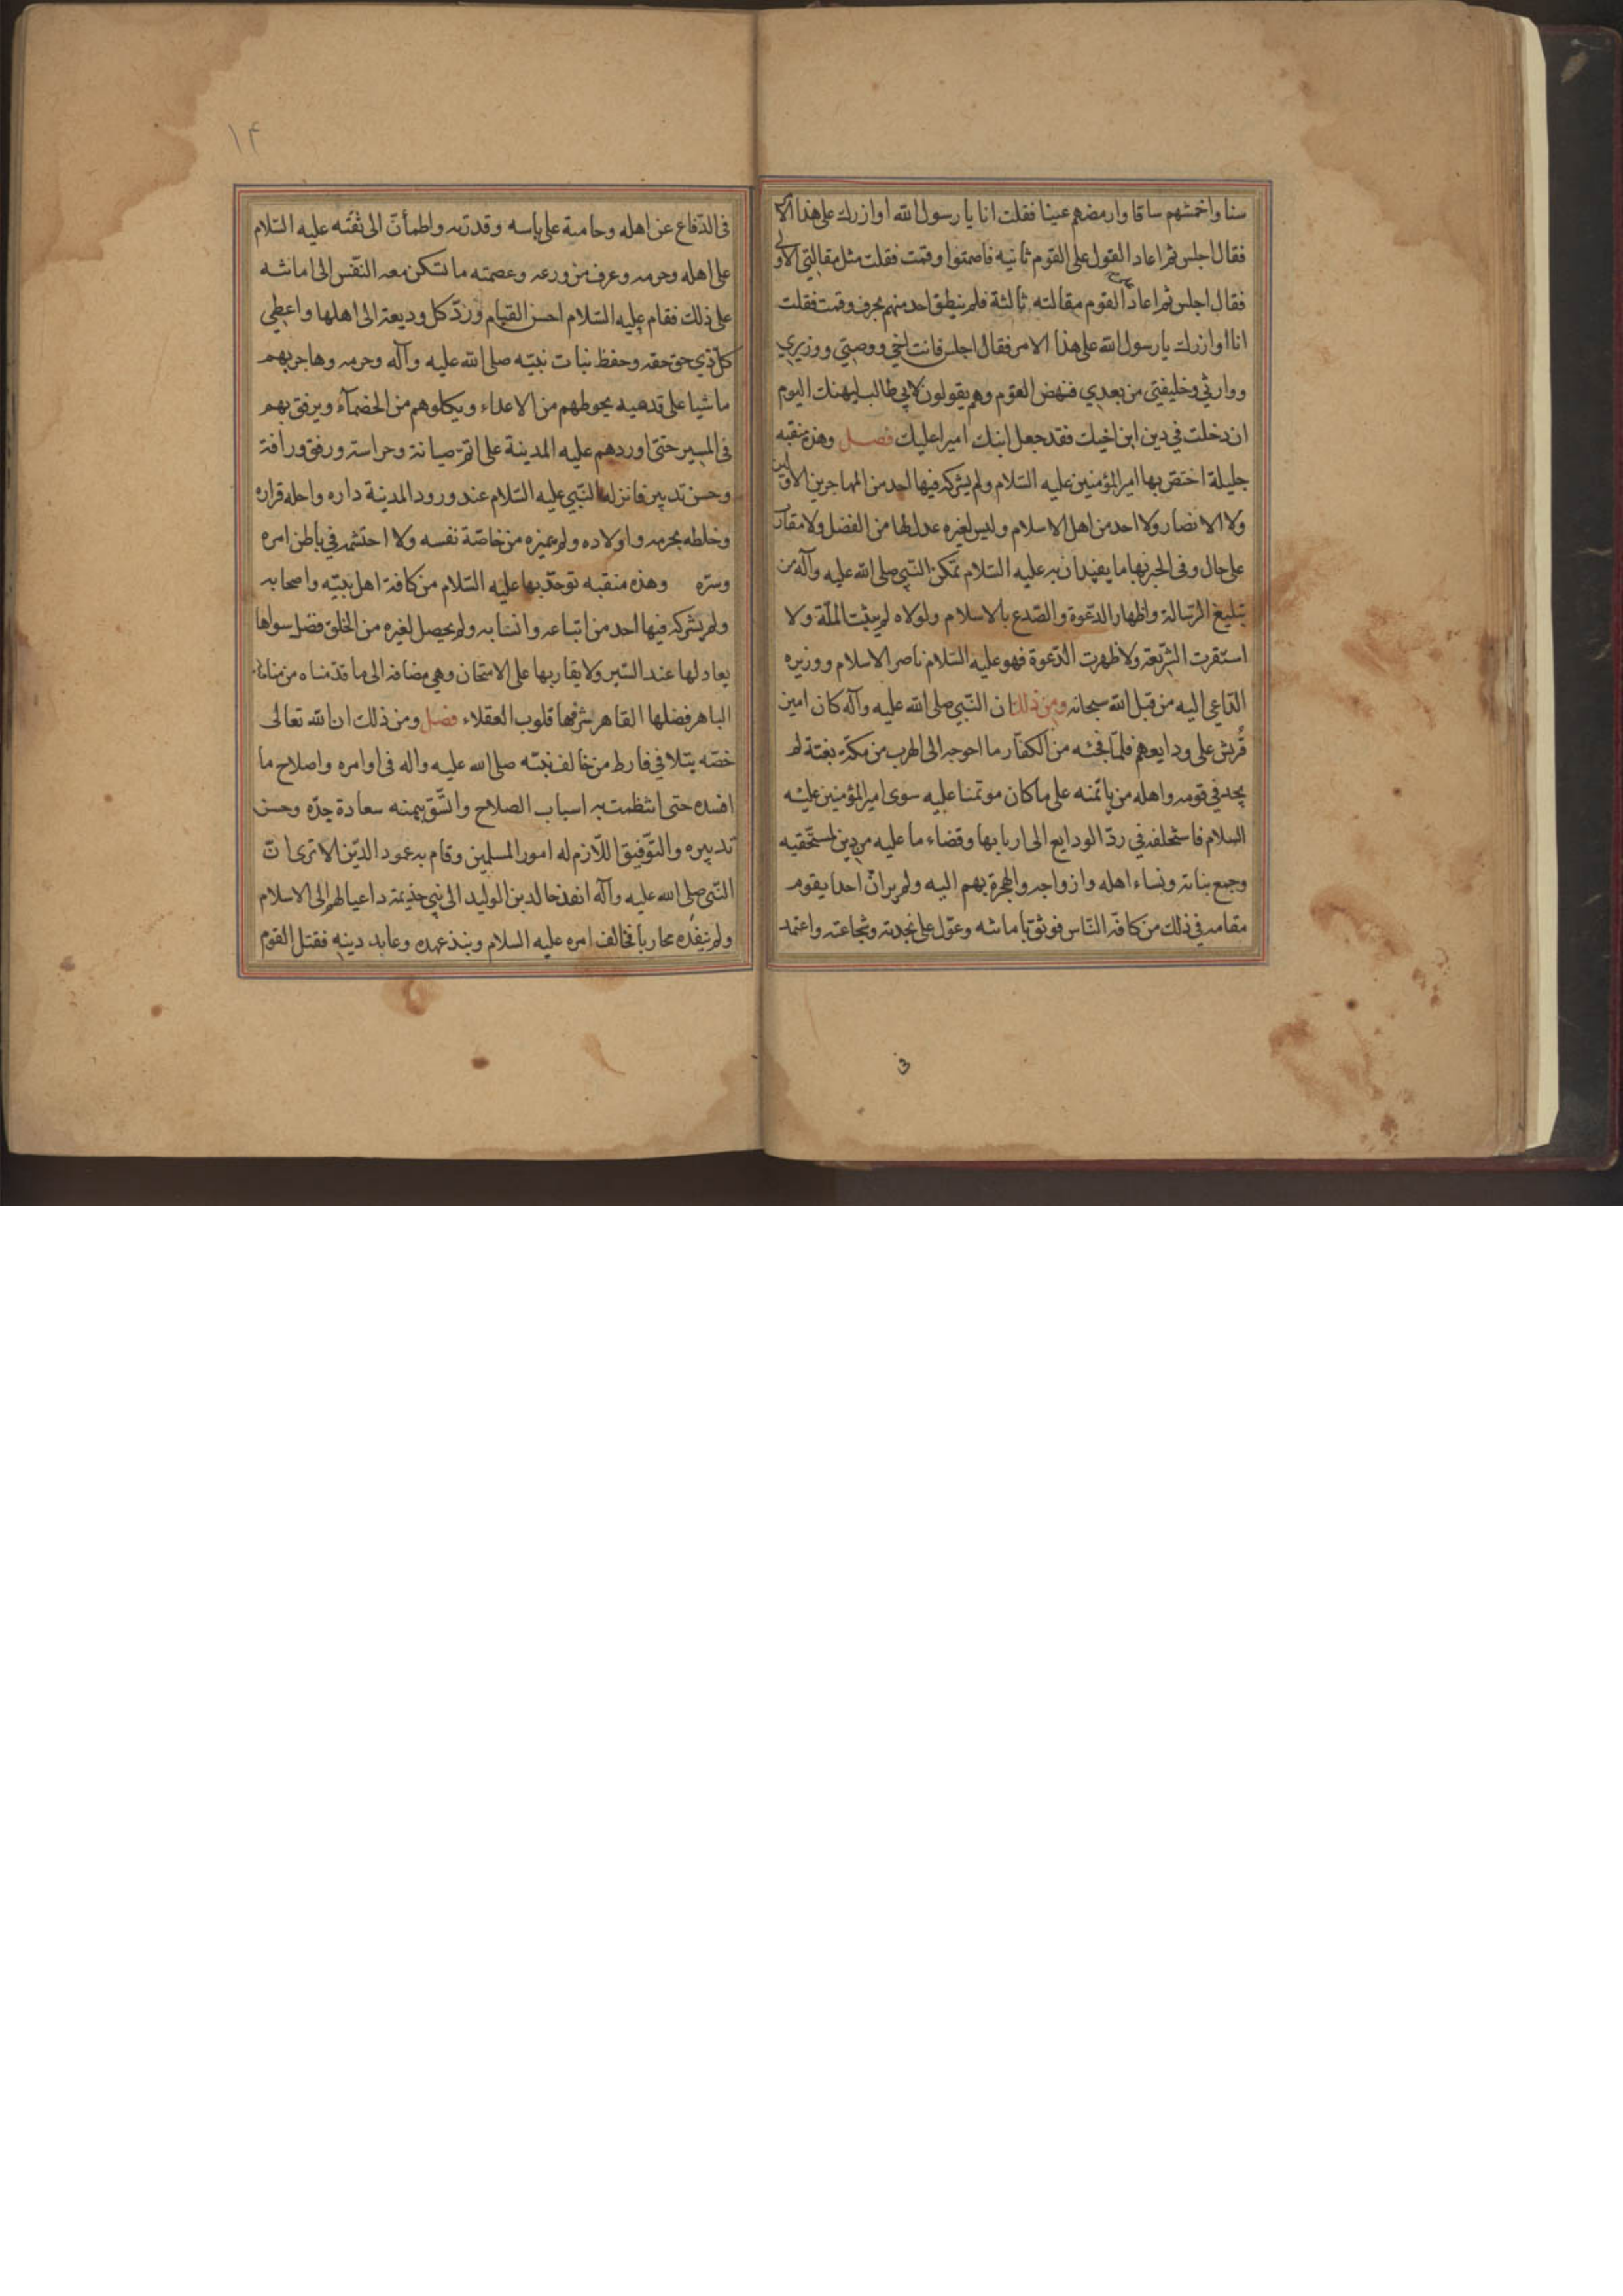 سنا واخمشهم ساقا وارمضهم عينا فقلت انا يا رسول الله اوازرك على هذا الامر
فقال اجلس ثم اعاد القول على القوم ثانية فاصمتوا وقمت فقلت مثل مقالتي الاولى
فقال اجلس ثم اعاد القوم مقالته ثالثة فلم ينطق احد منهم بحرف وقمت فقلت
انا اوازرك يا رسول الله على هذا الامر فقال اجلس فانت اخي ووصيي ووزيري
ووارثي وخليفتي من بعدي فنهض القوم وهم يقولون لابي طالب ليهنك اليوم
ان دخلت في دين ابن اخيك فقد جعل ابنك اميرا عليك فصل وهذه منقبه
جليلة اختص بها امير المؤمنين عليه السّلام ولم يشركه فيها احد من المهاجرين الاولين
ولا الانصار ولا احد من اهل الاسلام وليس لغيره عدل لها من الفضل ولا مقارب
على حال وفى الخبر بها ما يفيد ان به عليه السّلام تمكن النّبي صلى الله عليه وآله من
تبليغ الرّسالة واظهار الدّعوة والصّدع بالاسلام ولولاه لم يثبت الملّة ولا
استقرت الشّريعة ولا ظهرت الدّعوة فهو عليه السّلام ناصر الاسلام ووزيره
الدّاعي اليه من قبل الله سبحانه ومن ذلك ان النّبي صلى الله عليه وآله كان امين
قُريش على ودايعهم فلمّا فجئه من الكفّار ما احوجه الى الهرب من مكّة بغتة لم
يجد في قومه واهله من يأتمنه على ما كان موتمنا عليه سوى امير المؤمنين عليه
السلام فاستخلفه في ردّ الودايع الى اربابها وقضاء ما عليه من دين لمستحقيه
وجمع بناته ونساء اهله وازواجه والهجرة بهم اليه ولم ير انّ احدا يقوم
مقامه في ذلك من كافة النّاس فوثق بامانته وعوّل على نجدته وشجاعته واعتمد
ع
١٤
فى الدّفاع عن اهله وحامية على باسه وقدرته واطمأنّ الى ثقته عليه السّلام
على اهله وحرمه وعرف من ورعه وعصمته ما تسكن معه النّفس الى امانته
على ذلك فقام عليه السّلام احسن القيام وردّ كل وديعة الى اهلها واعطي
كل ذي حق حقه وحفظ بنات نبيّه صلى الله عليه وآله وحرمه وهاجر بهم
ماشيا على قدميه يحوطهم من الاعداء ويكلوهم من الخصمآء ويرفق بهم
فى المسير حتى اوردهم عليه المدينة على اتمّ صيانة وحراسة ورفق ورافة
وحسن تدبير فانزله النّبي عليه السّلام عند ورود المدينة داره واحله قراره
وخلطه بحرمه واولاده ولم يميزه من خاصّة نفسه ولا احتشمه في باطن امره
وسرّه وهذه منقبه توحّد بها عليه السّلام من كافة اهل بيته واصحابه
ولم يشركه فيها احد من اتباعه وانسابه ولم يحصل لغيره من الخلق فضل سواها
يعادلها عند السّبر ولا يقاربها على الامتحان وهي مضافة الى ما قدّمناه من مناقبه
الباهر فضلها القاهر شرفها قلوب العقلاء فصل ومن ذلك ان الله تعالى
خصّه بتلافي فارط من خالف نبيّه صلى الله عليه واله فى اوامره واصلاح ما
افسده حتى انتظمت به اسباب الصلاح واتّسق بيمنه سعادة جدّه وحسن
تدبيره والتّوفيق اللّازم له امور المسلمين وقام به عمود الدّين الا ترى انّ
النّبي صلى الله عليه وآله انفذ خالد بن الوليد الى بني جذيمة داعيا لهم الى الاسلام
ولم ينفذه محاربا فخالف امره عليه السلام ونبذ عهده وعاند دينه فقتل القوم